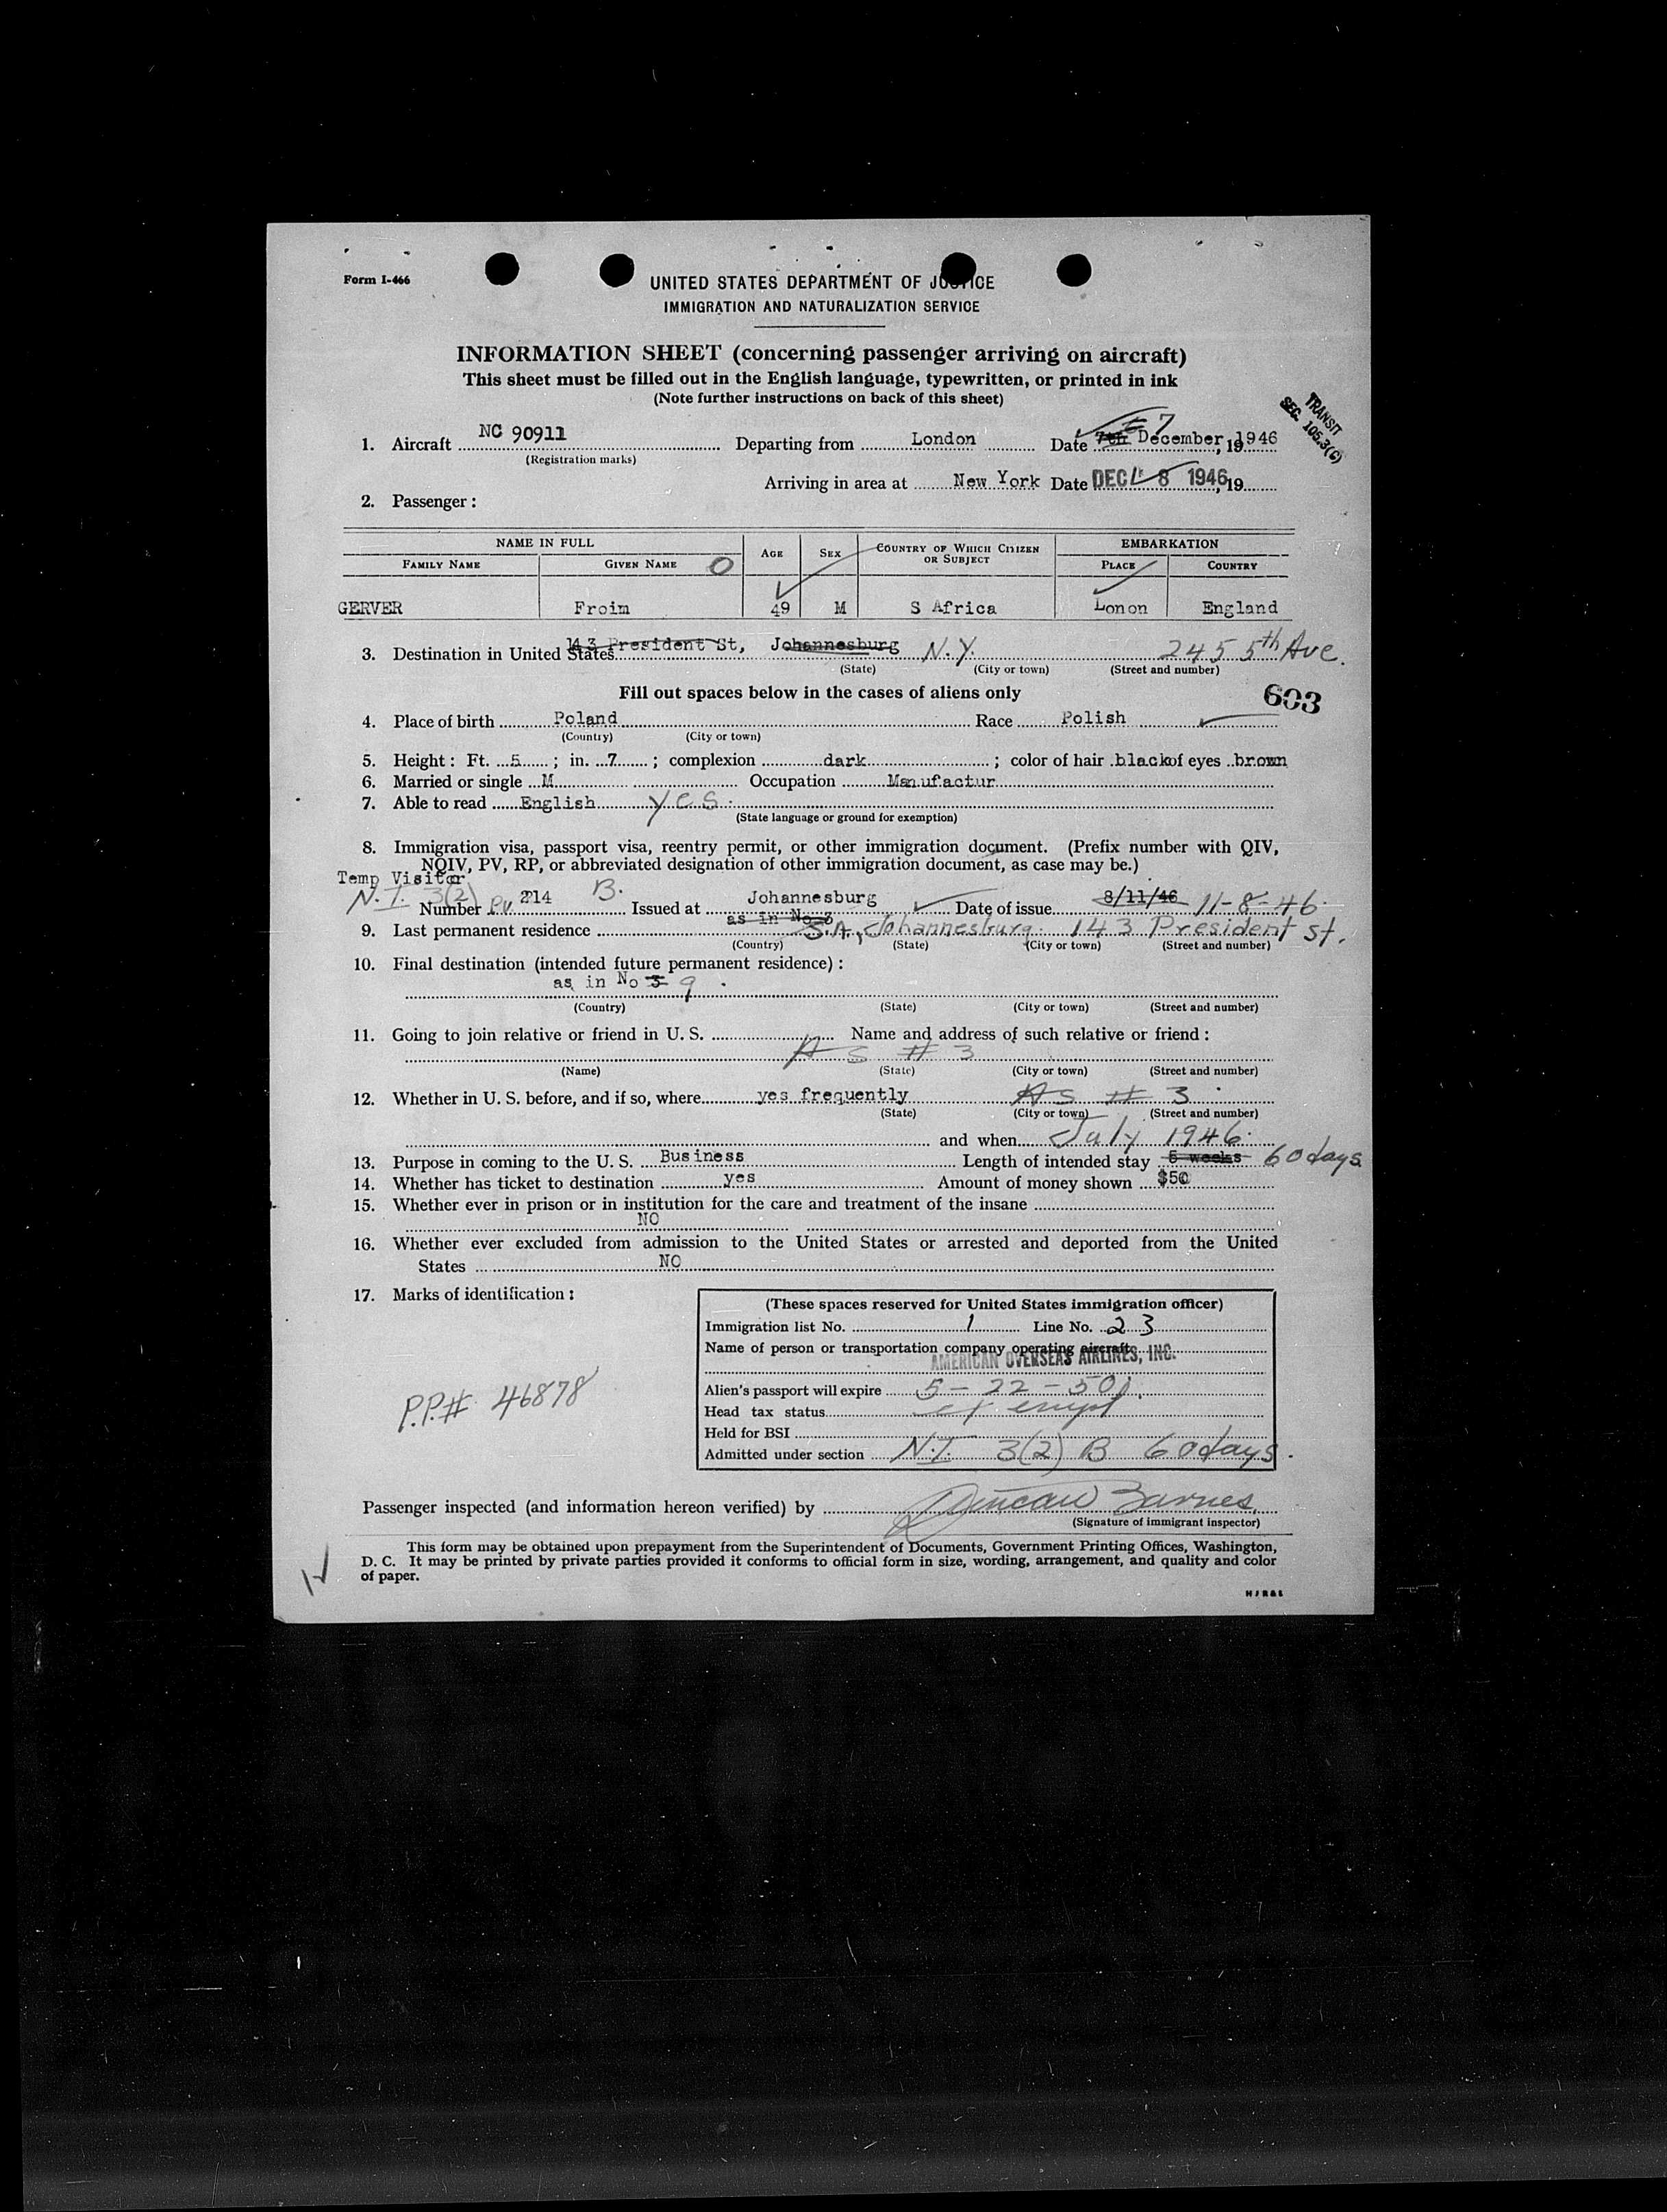 Form I-466
UNITED STATES DEPARTMENT OF JUSTICE
IMMIGRATION AND NATURALIZATION SERVICE
INFORMATION SHEET (concerning passenger arriving on aircraft)
This sheet must be filled out in the English language, typewritten, or printed in ink
(Note further instructions on back of this sheet)
TRANSIT
SEC. 105.3(C)
1. Aircraft NC 90911 Departing from London Date 7th 7 December, 1946
(Registration marks)
Arriving in area at New York Date DEC 8 1946, 19
2. Passenger:
NAME IN FULL AGE SEX COUNTRY OF WHICH CITIZEN OR SUBJECT EMBARKATION
FAMILY NAME GIVEN NAME O PLACE COUNTRY
GERVER Froim 49 M S Africa Lonon England
3. Destination in United States 143 President St, Johannesburg N.Y. 245 5th Ave.
(State) (City or town) (Street and number)
Fill out spaces below in the cases of aliens only
603
4. Place of birth Poland Race Polish
(Country) (City or town)
5. Height: Ft. 5; in. 7; complexion dark; color of hair black of eyes brown
6. Married or single M Occupation Manufactur
7. Able to read English Yes.
(State language or ground for exemption)
8. Immigration visa, passport visa, reentry permit, or other immigration document. (Prefix number with QIV,
NQIV, PV, RP, or abbreviated designation of other immigration document, as case may be.)
Temp Visitor
N.I. 3(2) B.
Number PV 214 Issued at Johannesburg Date of issue 8/11/46 11-8-46.
as in No 3
9. Last permanent residence S.A., Johannesburg. 143 President St.
(Country) (State) (City or town) (Street and number)
10. Final destination (intended future permanent residence):
as in No 3 9.
(Country) (State) (City or town) (Street and number)
11. Going to join relative or friend in U. S. Name and address of such relative or friend:
As # 3
(Name) (State) (City or town) (Street and number)
12. Whether in U. S. before, and if so, where yes frequently As # 3.
(State) (City or town) (Street and number)
and when July 1946.
13. Purpose in coming to the U. S. Business Length of intended stay 5 weeks 60 days
14. Whether has ticket to destination yes Amount of money shown $50
15. Whether ever in prison or in institution for the care and treatment of the insane
NO
16. Whether ever excluded from admission to the United States or arrested and deported from the United
States NO
17. Marks of identification:
P.P.# 46878
(These spaces reserved for United States immigration officer)
Immigration list No. 1 Line No. 23
Name of person or transportation company operating aircraft
AMERICAN OVERSEAS AIRLINES, INC.
Alien's passport will expire 5-22-50
Head tax status exempt
Held for BSI
Admitted under section N.I. 3(2) B 60 days.
Passenger inspected (and information hereon verified) by Duncan Barnes
(Signature of immigrant inspector)
This form may be obtained upon prepayment from the Superintendent of Documents, Government Printing Offices, Washington,
D. C. It may be printed by private parties provided it conforms to official form in size, wording, arrangement, and quality and color
of paper.